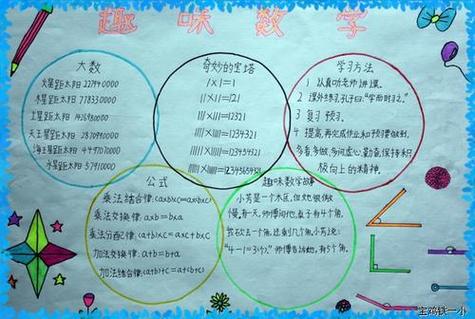 趣味数学
大数
火星距太阳 227940000
木星距太阳 778330000
土星距太阳 1426980000
天王星距太阳 2870990000
海王星距太阳 4497070000
水星距太阳 57910000
奇妙的宝塔
1×1=1
11×11=121
111×111=12321
1111×1111=1234321
11111×11111=123454321
111111×111111=12345654321
学习方法
1 认真听老师讲课。
2 课外练习,孔子曰:"学而时习之。"
3 复习 预习。
4 提高,再完成作业和预习要做到,
多看,多做,多问虚心,勤奋,保持积
极向上的精神。
公式
乘法结合律:(a×b)×c=a×(b×c)
乘法交换律:a×b=b×a
乘法分配律:(a+b)×c=a×c+b×c
加法交换律:a+b=b+a
加法结合律:(a+b)+c=a+(b+c)
趣味数学故事
小芳是一个木匠,但她
慢。有一天,师傅问他,桌子有4个角,
我砍去一个角,还剩几个角,小芳说:
"4-1=3个。"师傅告诉她,有5个角。
宝鸡铁一小